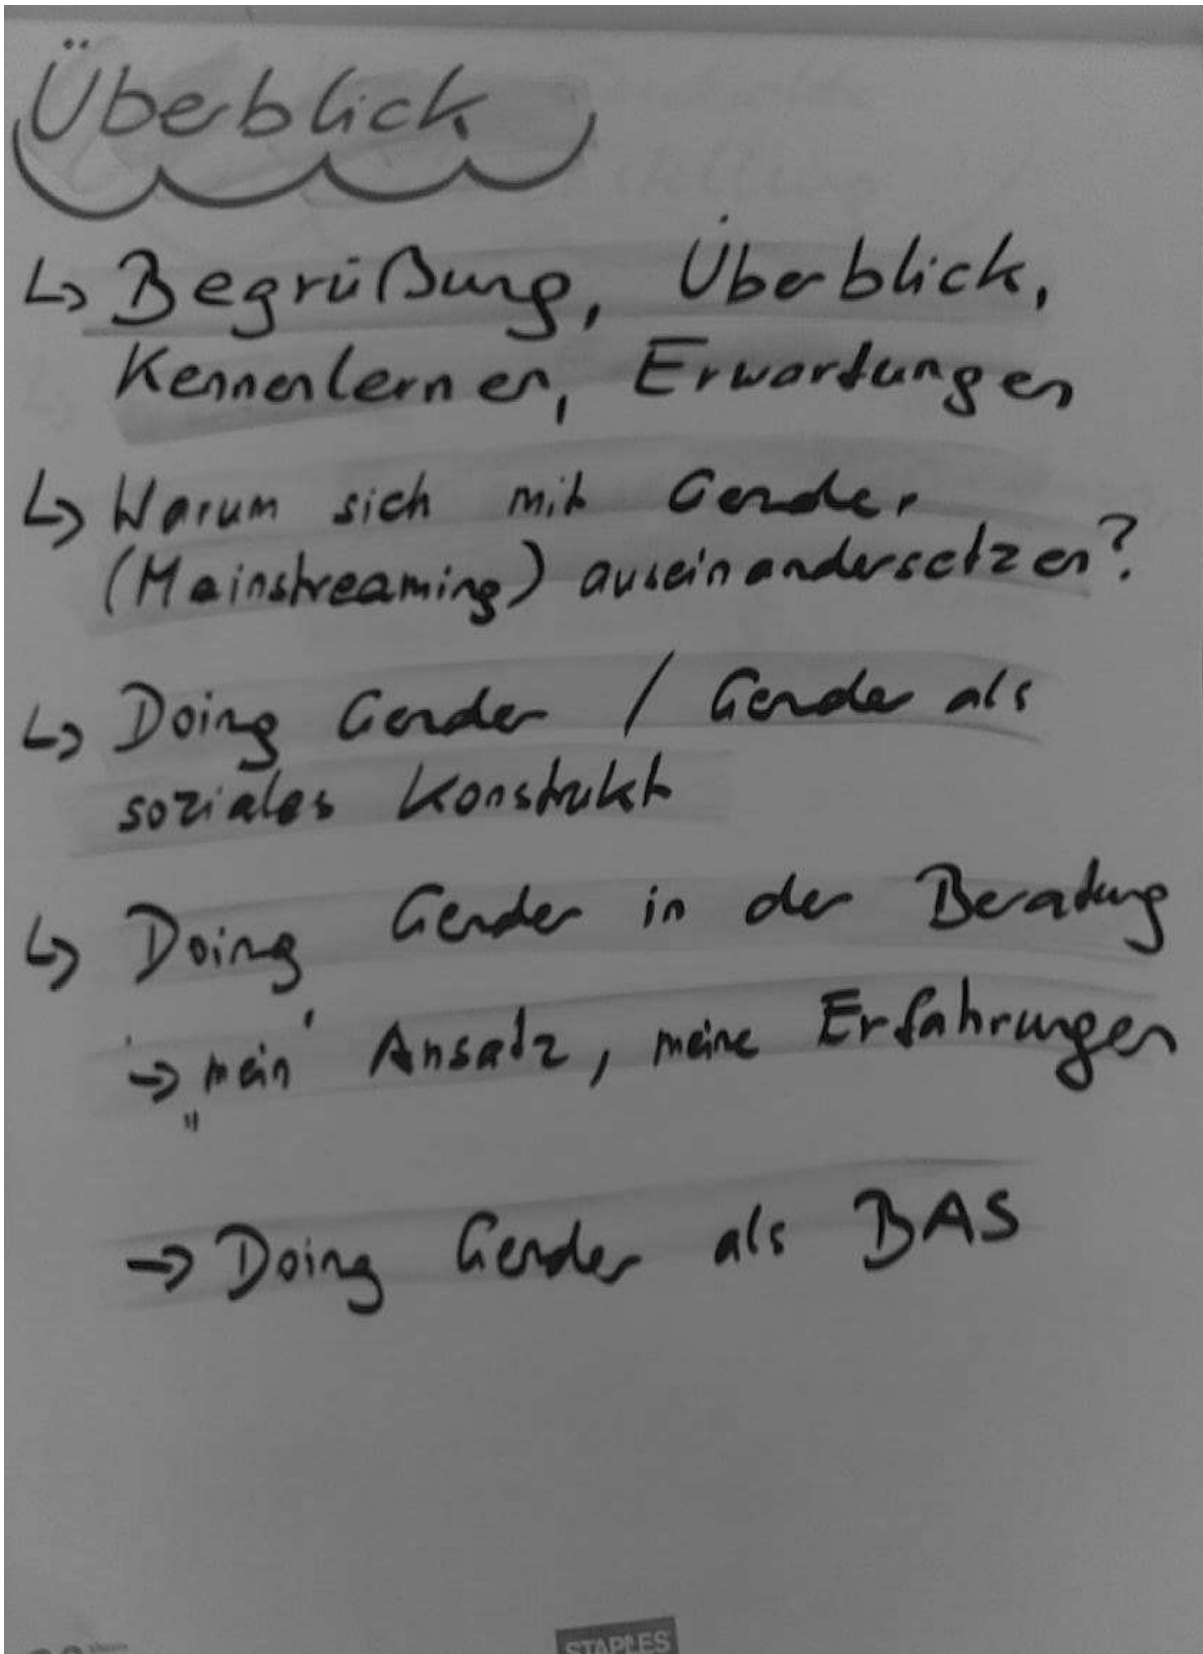 Überblick
↳ Begrüßung, Überblick,
Kennenlernen, Erwartungen
↳ Warum sich mit Gender
(Mainstreaming) auseinandersetzen?
↳ Doing Gender / Gender als
soziales Konstrukt
↳ Doing Gender in der Beratung
→ „mein' Ansatz, meine Erfahrungen
→ Doing Gender als BAS
STAPLES